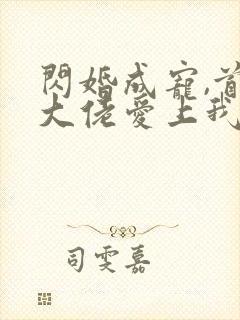 閃婚成寵,首
大佬愛上我
司雯嘉